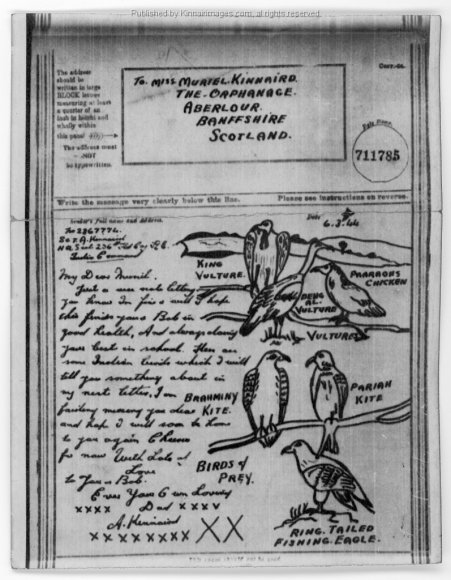 Published by Kinnairdimages.com, all rights reserved.
The address
should be
written in large
BLOCK letters
measuring at least
a quarter of an
inch in height and
wholly within
this panel
The address must
NOT
be typewritten.
TO. MISS. MURIEL. KINNAIRD.
THE. ORPHANAGE.
ABERLOUR.
BANFFSHIRE
SCOTLAND.
711785
Write the message very clearly below this line.
Please see instructions on reverse.
Sender's full name and address.
Date
6.3.44
My Dear Muriel.
Just a line letting
you know I'm fine will I hope
this finds you & Bob in
good health, And always doing
your best in school. Here are
some Indian birds which I will
tell you something about in
my next letter. I am
missing you dear
and hope I will soon be home
to you again Cheerio
for now With Lots of
Love
to You & Bob.
Ever Your Own Loving
xxxx Dad xxxx
A. Kinnaird
xxxxxxx XX
KING
VULTURE.
PHARAOHS
CHICKEN
BENG
AL.
VULTURE
VULTURE
BRAHMINY
KITE.
PARIAH
KITE
BIRDS of
PREY.
RING. TAILED
FISHING. EAGLE.
This space should not be used